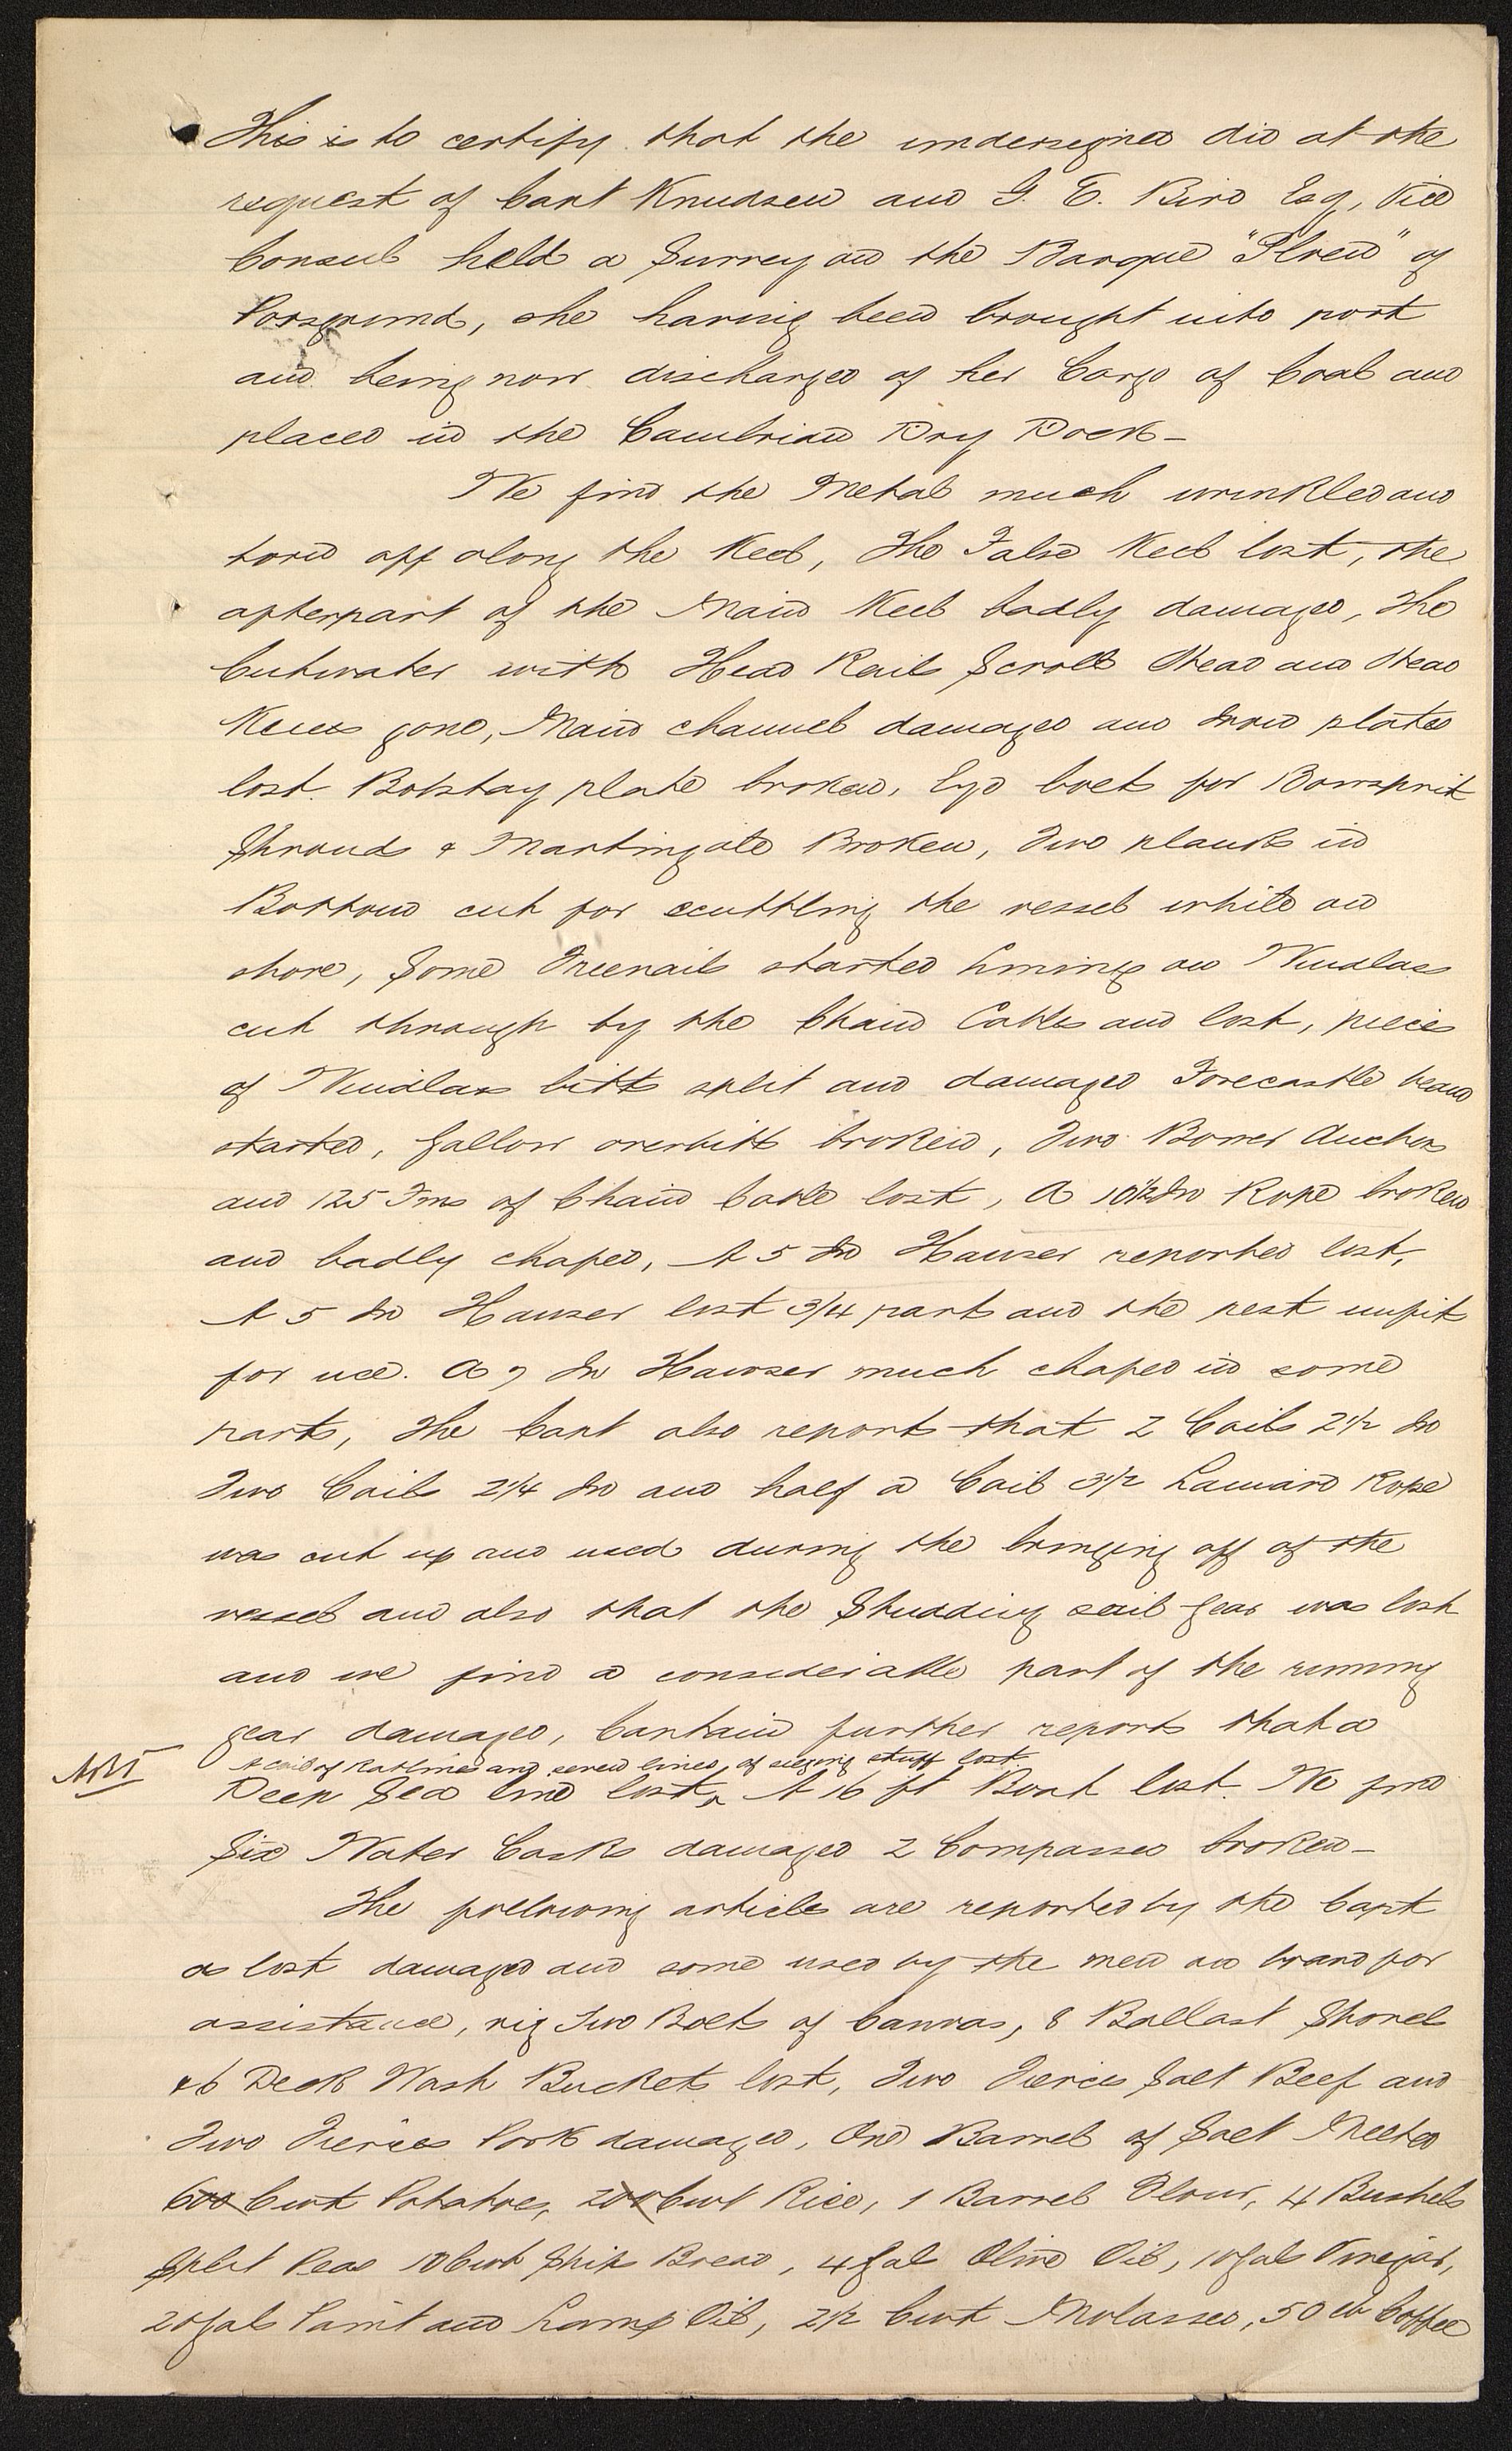 This is to certify that the undersigned did at the
request of Capt Knudsen and G. E. Bird Esq, Vice
Consul held a Survey on the Barque "Floren" of
Porsgrund, she having been brought into port
and being now discharged of her Cargo of Coal and
placed in the Cambrian Dry Dock_
We find the Metal much wrinkled and
torn off along the Keel, The False Keel lost, the
afterpart of the Main Keel badly damaged, The
Cutwater with Head Rails Scroll Head and Head
Knees gone, Main channel damaged and Iron plates
lost. Bobstay plate broken, Eye bolts for Bowsprit
Shrouds & Martingale Broken, Two planks in
Bottom cut for scuttling the vessel while on
shore, Some Treenails started Linings on Windlass
cut through by the Chain Cables and lost, pieces
of Windlass bitts split and damaged Forecastle beam
started, Gallow overbitts broken, Two Bower Anchors
and 125 Fms of Chain Cable lost, A 10½ In Rope broken
and badly chafed, A 5 In Hawser reported lost,
A 5 In Hawser lost 3/4 parts and the rest unfit
for use. A 9 In Hawser much chafed in some
parts, The Capt also reports that 2 Coils 2½ In
Two Coils 2¼ In and half a Coil 3½ Laniard Rope
was cut up and used during the bringing off of the
vessel and also that the Studding sail gear was lost
and we find a considerable part of the running
gear damaged, Captain further reports that a
A coil of Ratline and seven lines of seizing stuff lost
Deep Sea line lost, A 16 ft Boat lost. We find
Six Water Casks damaged 2 Compasses broken_
The following articles are reported by the Capt
as lost damaged and some used by the men on board for
assistance, viz Two Bolts of Canvas, 8 Ballast Shovels
& 6 Deck Wash Buckets lost, Two Tierces Salt Beef and
Two Tierces Pork damaged, One Barrel of Salt Melted
6 Cwt Potatoes, 2 Cwt Rice, 1 Barrel Flour, 4 Bushels
Split Peas 10 Cwt Ship Bread, 4 Gal Olive Oil, 10 Gals Vinegar,
20 Gals Paint and Lamp Oil, 2½ Cwt Molasses, 50 lb Coffee